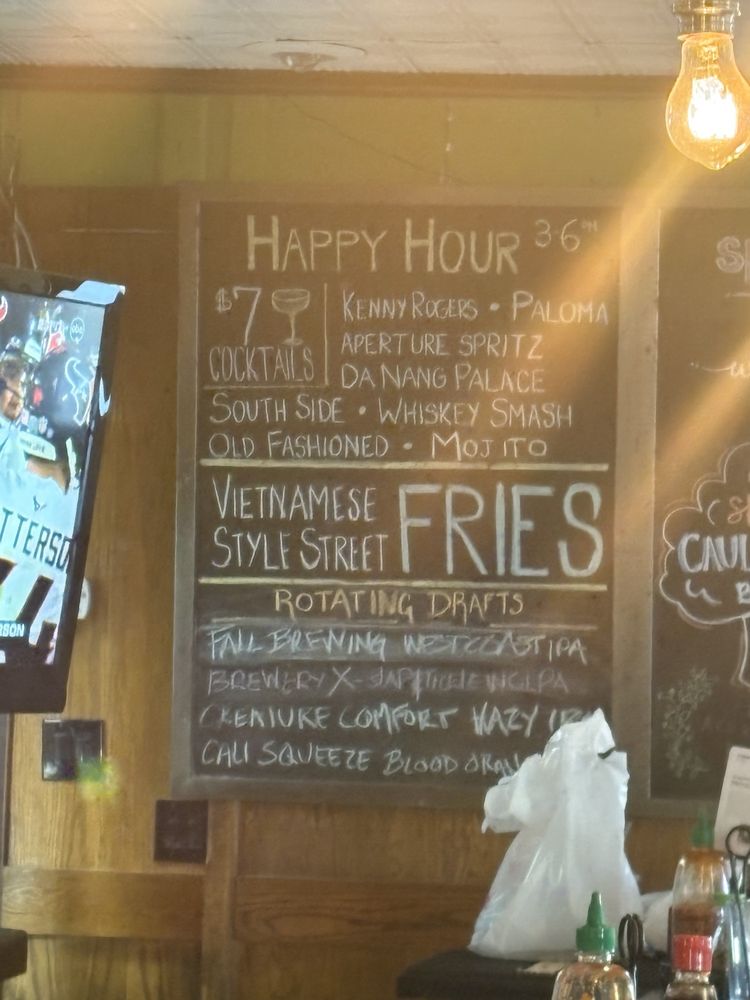 HAPPY HOUR 3-6PM
$7
COCKTAILS
KENNY ROGERS • PALOMA
APERTURE SPRITZ
DA NANG PALACE
SOUTH SIDE • WHISKEY SMASH
OLD FASHIONED • MOJITO
VIETNAMESE
STYLE STREET
FRIES
ROTATING DRAFTS
FALL BREWING WEST COAST IPA
BREWERY X-
CREATURE COMFORT HAZY
CALI SQUEEZE BLOOD
CAUL
abc
TTERSO
RSON